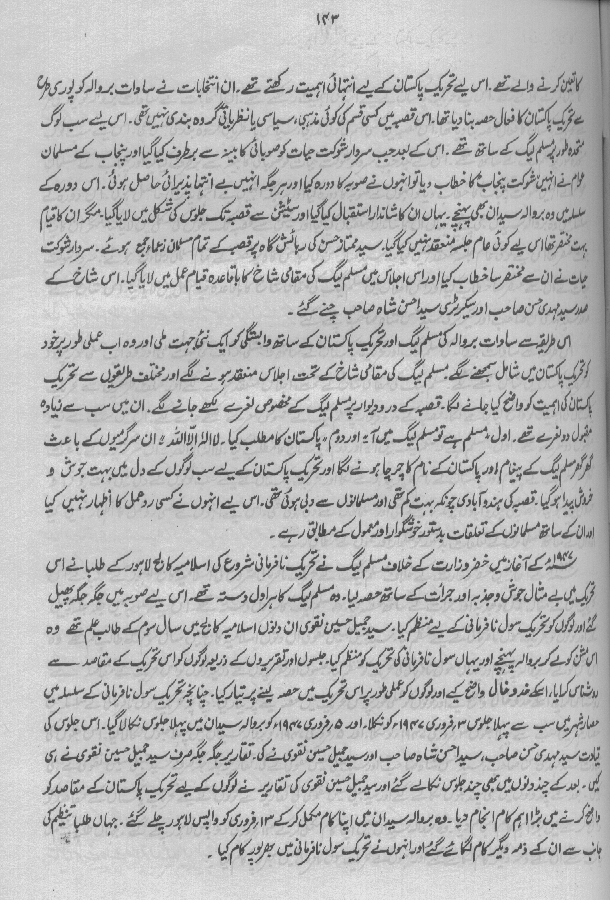 ۱۴۳
کا تعین کرنے والے تھے۔ اس لیے تحریک پاکستان کے لیے انتہائی اہمیت رکھتے تھے۔ ان انتخابات نے سادات بروالہ کو پوری طرح
سے تحریک پاکستان کا فعال حصہ بنا دیا تھا۔ اس قصبہ میں کسی قسم کی کوئی مذہبی، سیاسی یا نظریاتی گروہ بندی نہیں تھی۔ اس لیے سب لوگ
متحدہ طور پر مسلم لیگ کے ساتھ تھے۔ اس کے بعد جب سردار شوکت حیات کو صوبائی کابینہ سے برطرف کیا گیا اور پنجاب کے مسلمان
عوام نے انہیں شوکت پنجاب کا خطاب دیا تو انہوں نے صوبہ کا دورہ کیا اور ہر جگہ انہیں بے انتہا پذیرائی حاصل ہوئی۔ اس دورہ کے
سلسلہ میں وہ بروالہ سیدان بھی پہنچے۔ یہاں ان کا شاندار استقبال کیا گیا اور سٹیشن سے قصبہ تک جلوس کی شکل میں لایا گیا۔ مگر ان کا قیام
بہت مختصر تھا اس لیے کوئی عام جلسہ منعقد نہیں کیا گیا۔ سید ممتاز حسن کی رہائش گاہ پر قصبہ کے تمام مسلمان زعماء جمع ہوئے۔ سردار شوکت
حیات نے ان سے مختصر سا خطاب کیا اور اس اجلاس میں مسلم لیگ کی مقامی شاخ کا باقاعدہ قیام عمل میں لایا گیا۔ اس شاخ کے
صدر سید مہدی حسن صاحب اور سیکرٹری سید احسن شاہ صاحب چنے گئے۔
اس طریقہ سے سادات بروالہ کی مسلم لیگ اور تحریک پاکستان کے ساتھ وابستگی کو ایک نئی جہت ملی اور وہ اب عملی طور پر خود
کو تحریک پاکستان میں شامل سمجھنے لگے۔ مسلم لیگ کی مقامی شاخ کے تحت اجلاس منعقد ہونے لگے اور مختلف طریقوں سے تحریک
پاکستان کی اہمیت کو واضح کیا جانے لگا۔ قصبہ کے در و دیوار پر مسلم لیگ کے مخصوص نعرے لکھے جانے لگے۔ ان میں سب سے زیادہ
مقبول دو نعرے تھے۔ اول "مسلم ہے تو مسلم لیگ میں آ" اور دوم "پاکستان کا مطلب کیا۔ لا الہ الا اللہ" ان سرگرمیوں کے باعث
گھر گھر مسلم لیگ کے پیغام اور پاکستان کے نام کا چرچا ہونے لگا اور تحریک پاکستان کے لیے سب لوگوں کے دل میں بہت جوش و
خروش پیدا ہو گیا۔ قصبہ کی ہندو آبادی چونکہ بہت کم تھی اور مسلمانوں سے دبی ہوئی تھی۔ اس لیے انہوں نے کسی ردعمل کا اظہار نہیں کیا
اور ان کے ساتھ مسلمانوں کے تعلقات بدستور خوشگوار اور معمول کے مطابق رہے۔
۱۹۴۷ء کے آغاز میں خضر وزارت کے خلاف مسلم لیگ نے تحریک نافرمانی شروع کی اسلامیہ کالج لاہور کے طلبا نے اس
تحریک میں بے مثال جوش و جذبہ اور جرات کے ساتھ حصہ لیا۔ وہ مسلم لیگ کا ہراول دستہ تھے۔ اس لیے صوبہ میں جگہ جگہ پھیل
گئے اور لوگوں کو تحریک سول نافرمانی کے لیے منظم کیا۔ سید جمیل حسین نقوی ان دنوں اسلامیہ کالج میں سال سوم کے طالب علم تھے وہ
اس مشن کو لے کر بروالہ پہنچے اور یہاں سول نافرمانی کی تحریک کو منظم کیا۔ جلسوں اور تقریروں کے ذریعہ لوگوں کو اس تحریک کے مقاصد سے
روشناس کرایا، اسکے خدوخال واضح کیے اور لوگوں کو عملی طور پر اس تحریک میں حصہ لینے پر تیار کیا۔ چنانچہ تحریک سول نافرمانی کے سلسلہ میں
حصار شہر میں سب سے پہلا جلوس ۳ فروری ۱۹۴۷ء کو نکلا، اور ۵ فروری ۱۹۴۷ء کو بروالہ سیدان میں پہلا جلوس نکالا گیا۔ اس جلوس کی
قیادت سید مہدی حسن صاحب، سید احسن شاہ صاحب اور سید جمیل حسین نقوی نے کی۔ تقاریر جگہ جگہ صرف سید جمیل حسین نقوی نے ہی
کیں۔ بعد کے چند دنوں میں بھی چند جلوس نکالے گئے اور سید جمیل حسین نقوی کی تقاریر نے لوگوں کے لیے تحریک پاکستان کے مقاصد کو
واضح کرنے میں بڑا اہم کام انجام دیا۔ وہ بروالہ سیدان میں اپنا کام مکمل کر کے ۱۳ فروری کو واپس لاہور چلے گئے۔ جہاں طلبا تنظیم کی
جانب سے ان کے ذمہ دیگر کام لگائے گئے اور انہوں نے تحریک سول نافرمانی میں بھرپور کام کیا۔